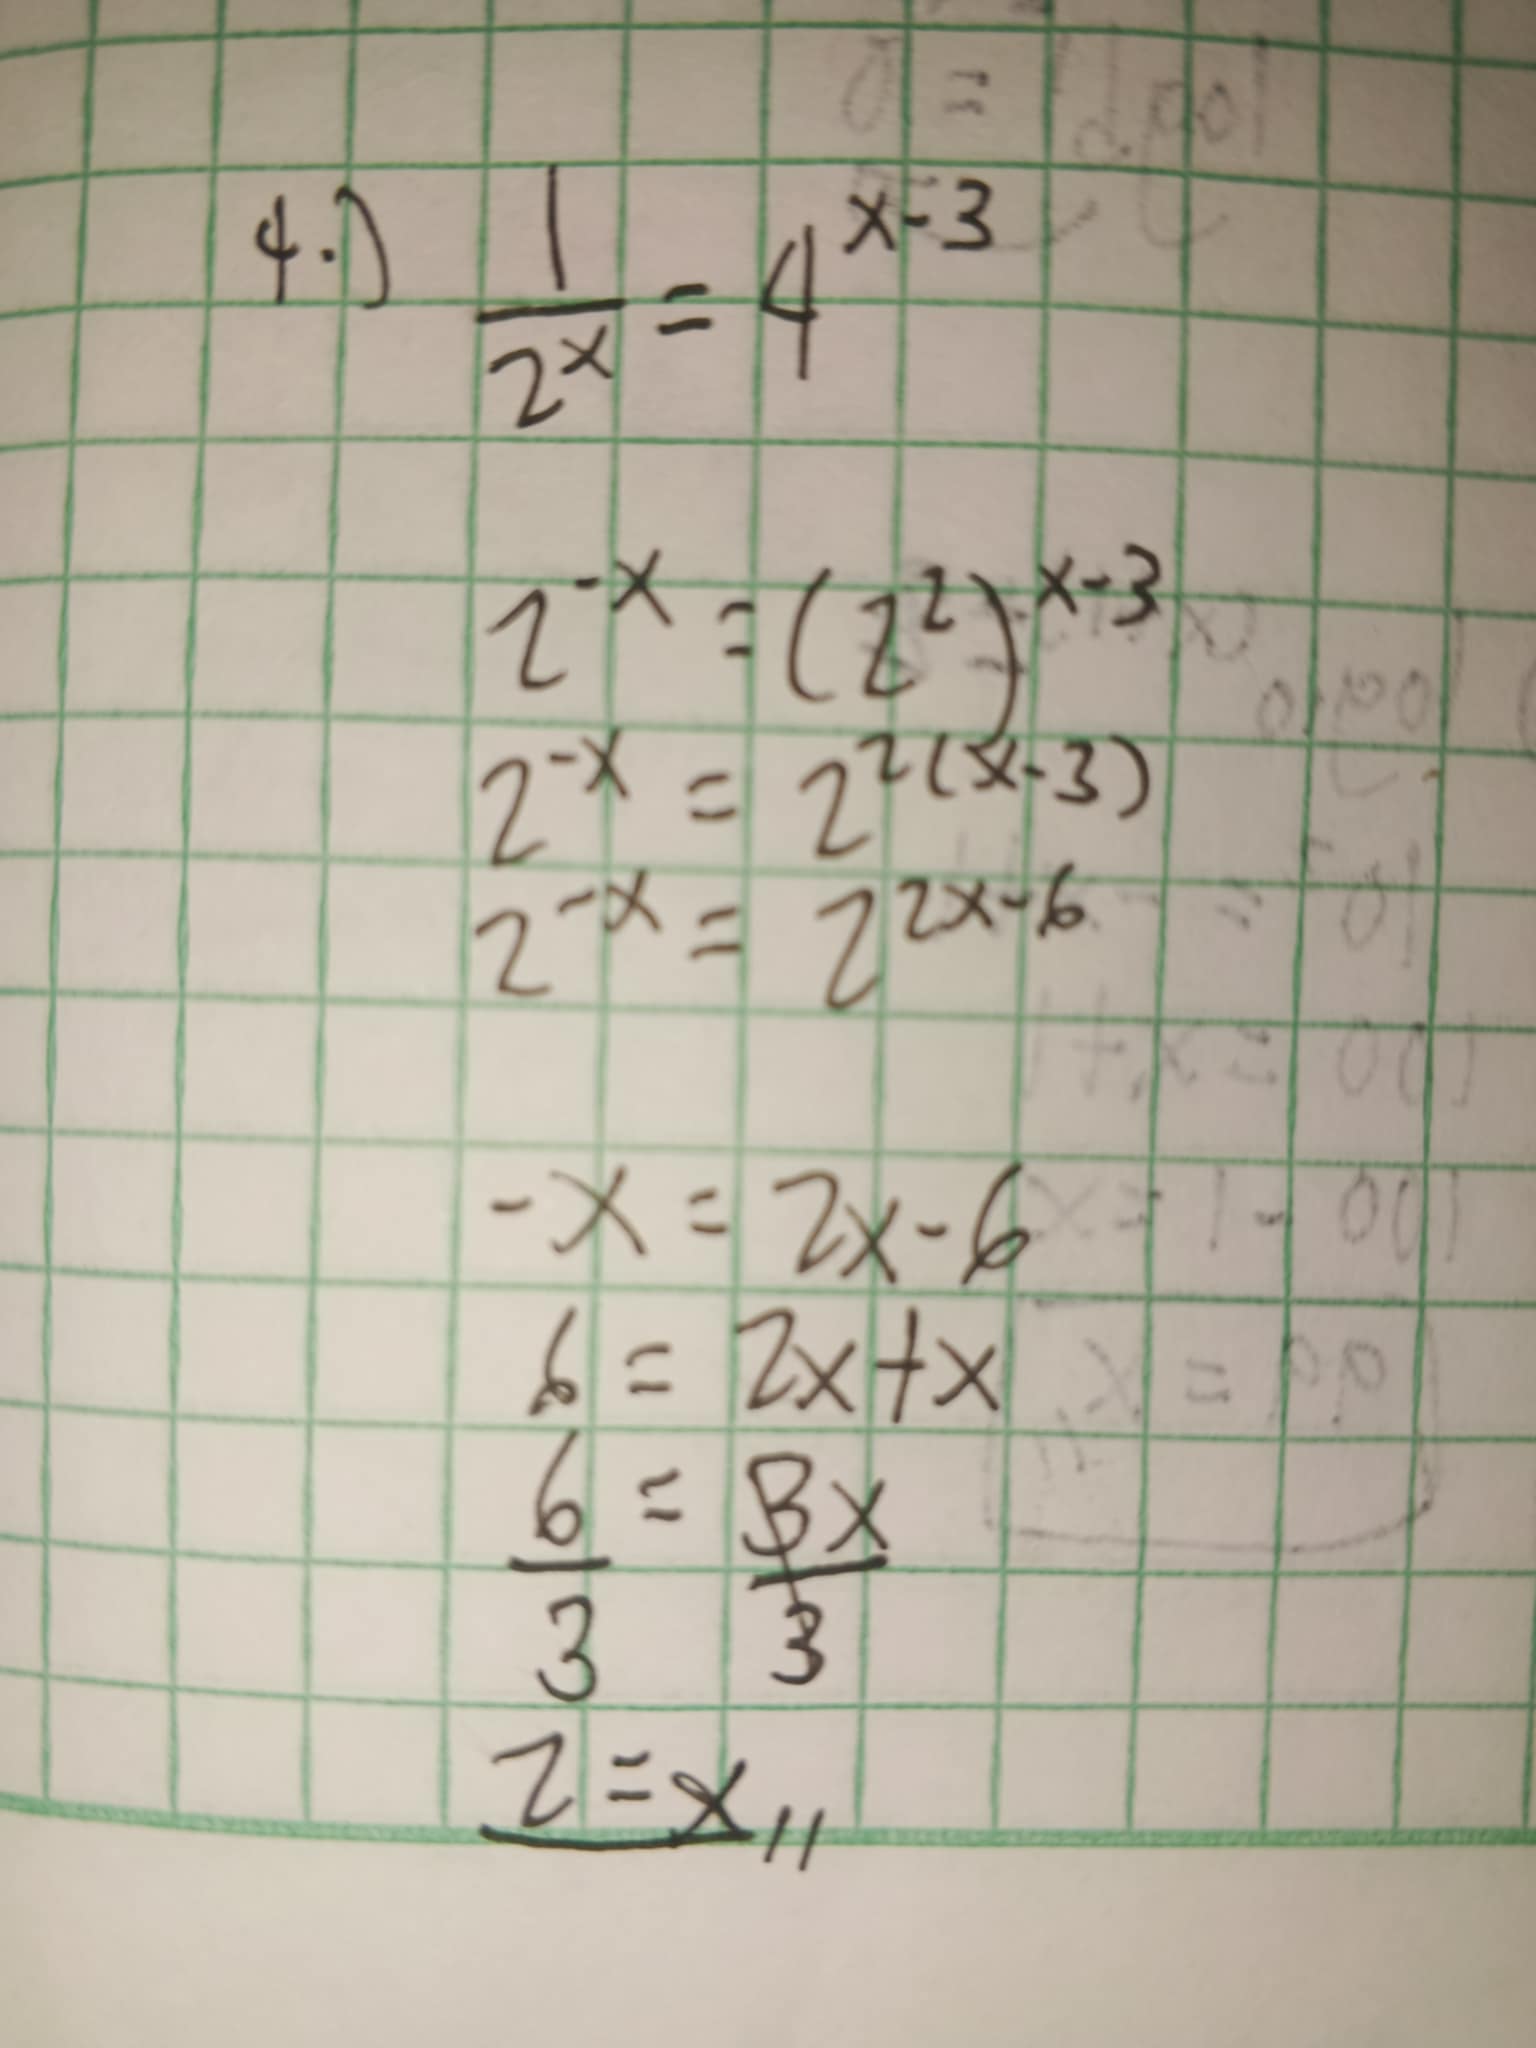 4.) 1/2^x = 4^(x-3)
2^-x = (2^2)^(x-3)
2^-x = 2^2(x-3)
2^-x = 2^(2x-6)
-x = 2x-6
6 = 2x+x
6/3 = 3x/3
2=x,,